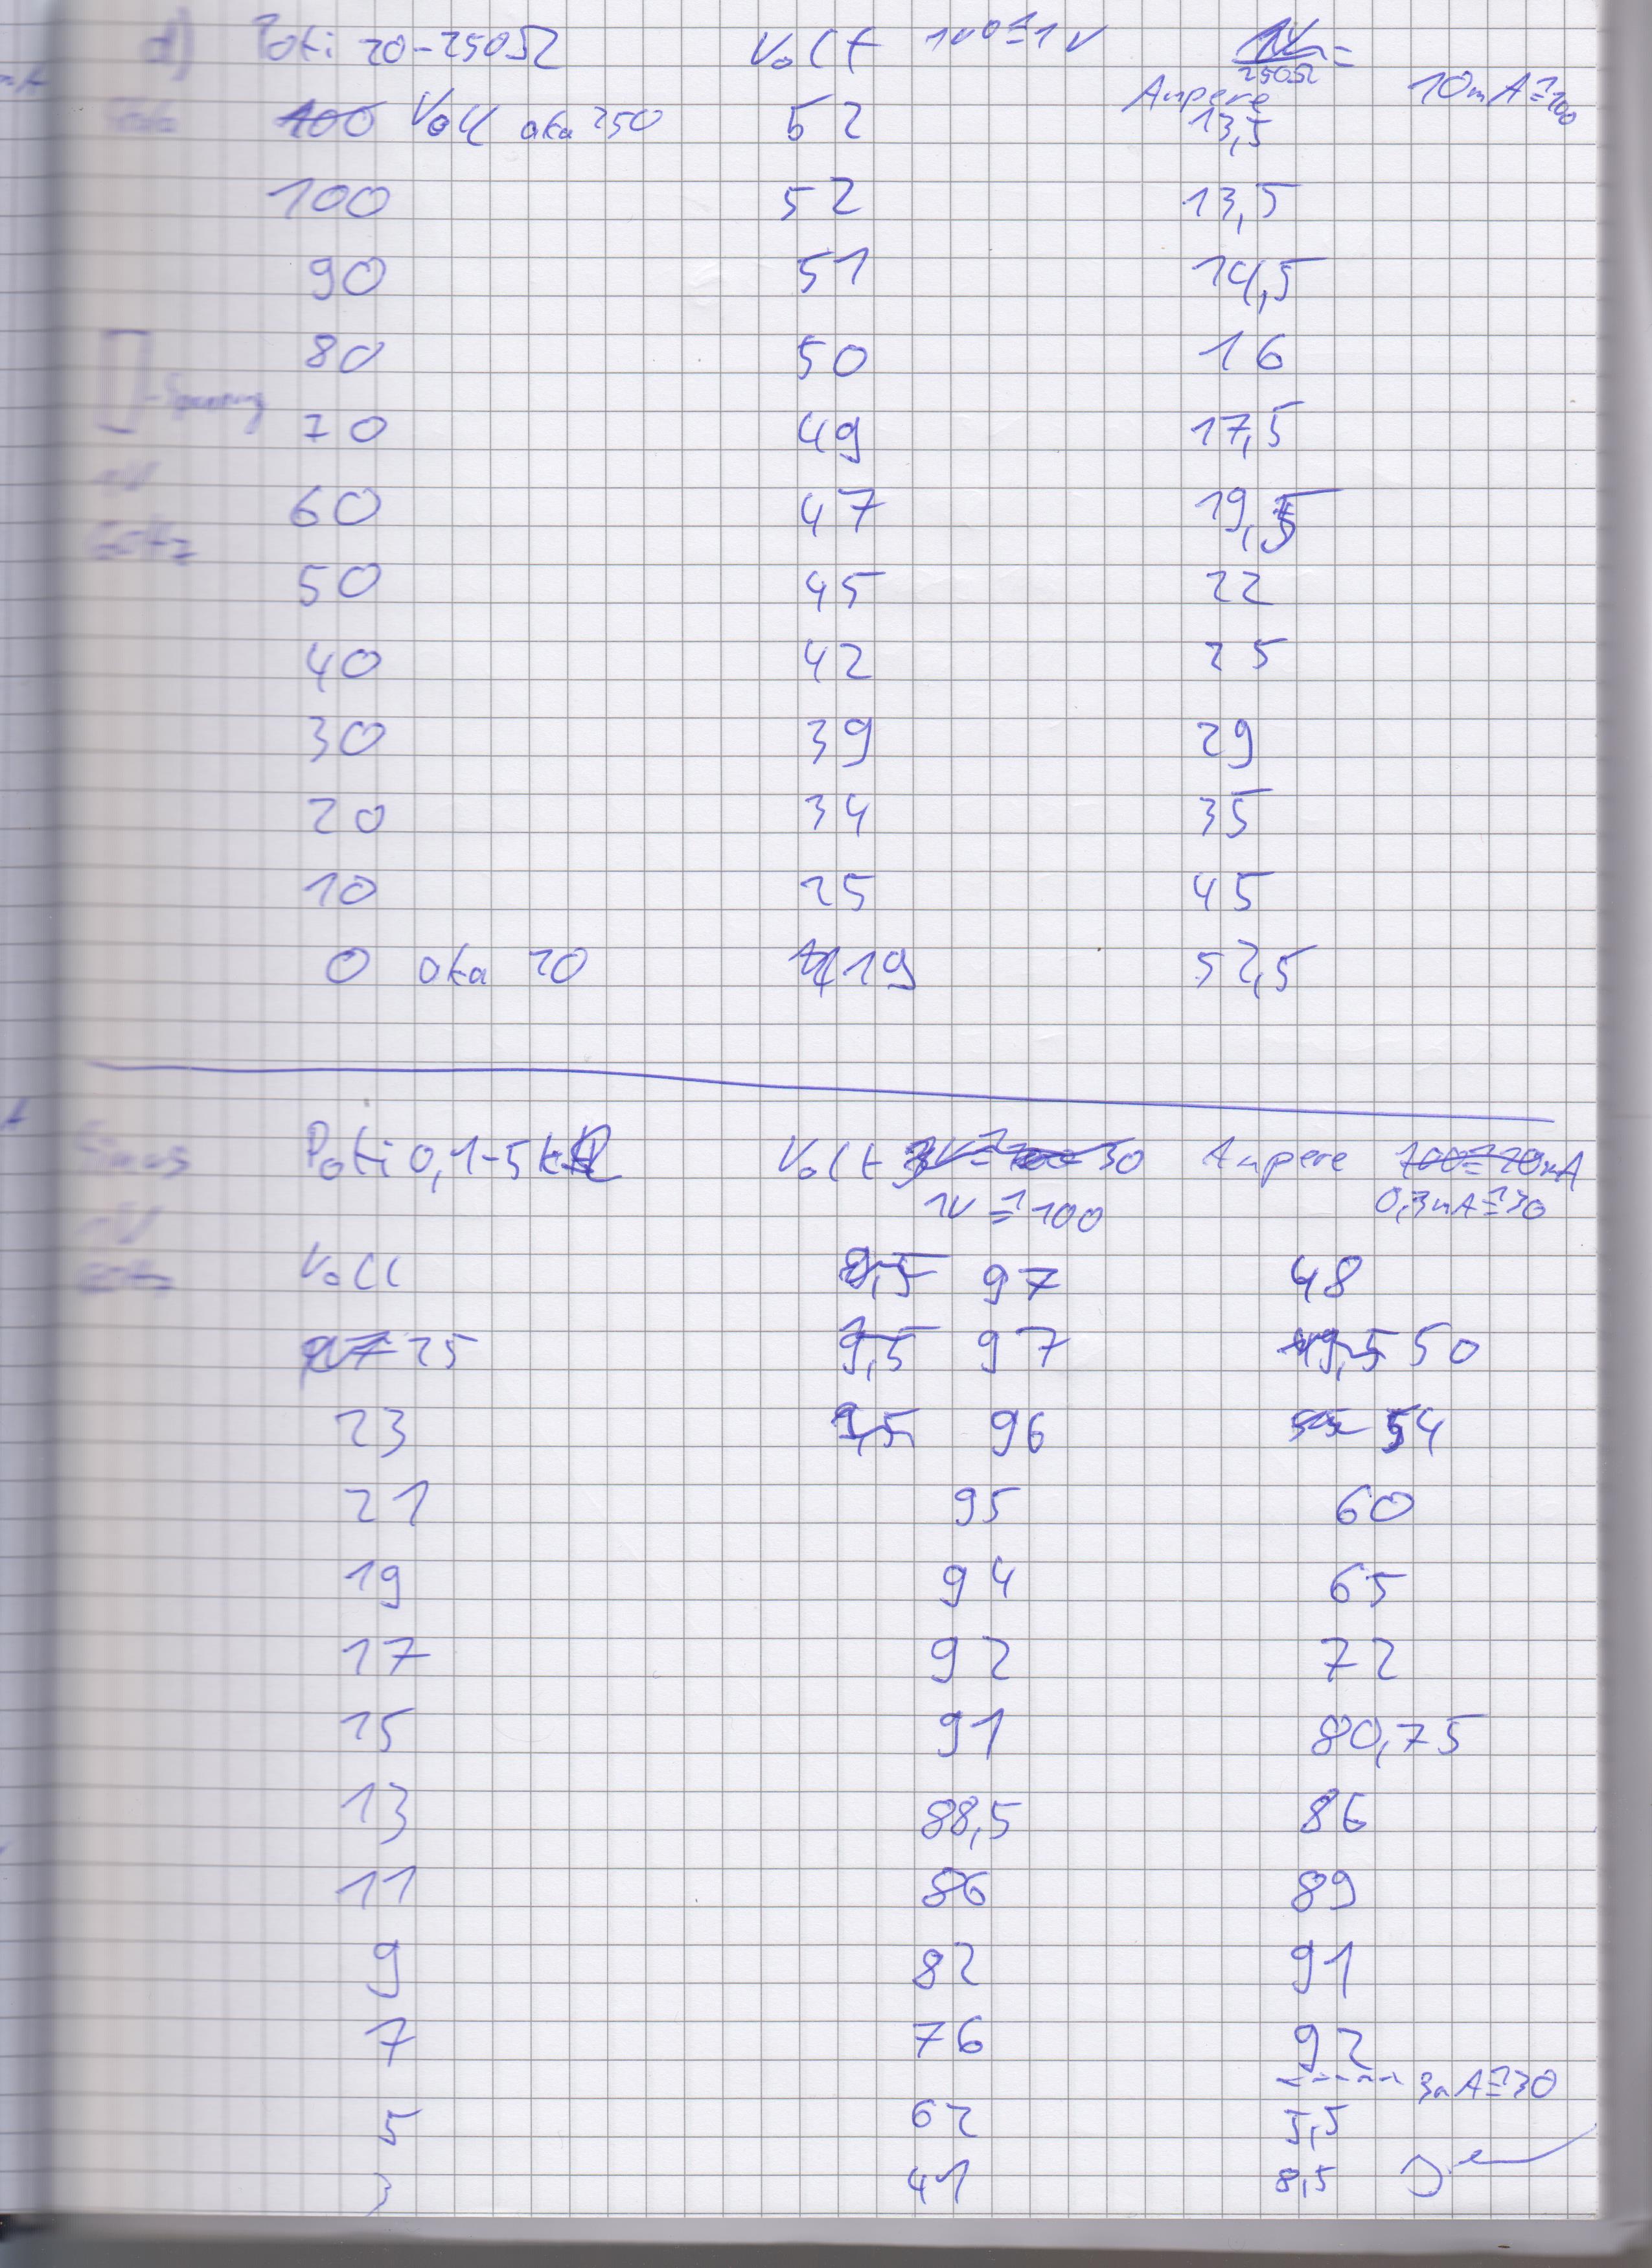 d) Poti 20-250Ω Volt 100≙1V
250Ω =
Ampere 10mA≙100
Voll aka 250 52 13,5
100 52 13,5
90 51 14,5
80 50 16
70 49 17,5
60 47 19,5
50 45 22
40 42 25
30 39 29
20 34 35
10 25 45
0 aka 20 19 52,5
Poti 0,1-5kΩ Volt 30 Ampere
1V≙100 0,3mA≙30
Voll 97 48
25 97 50
23 96 54
21 95 60
19 94 65
17 92 72
15 91 80,75
13 88,5 86
11 86 89
9 82 91
7 76 92
3mA≙30
5 62 5,5
3 41 8,5